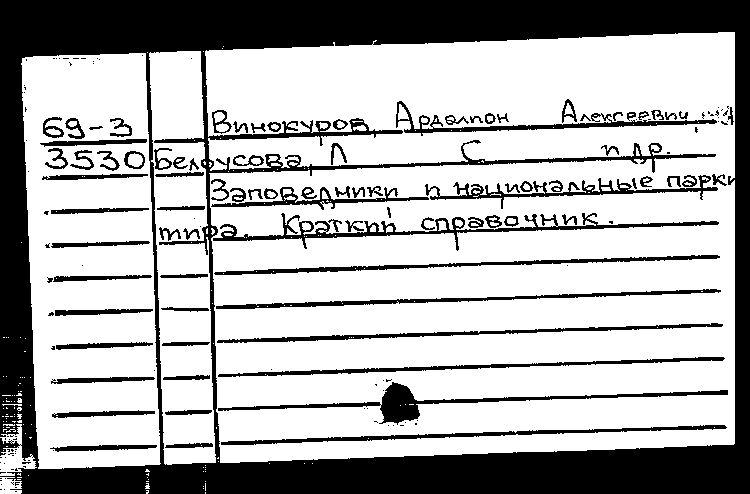 69-3 Винокуров, Ардалион Алексеевич,
3530 Белоусова, Л С и др.
Заповедники и национальные парки
мира. Краткий справочник.